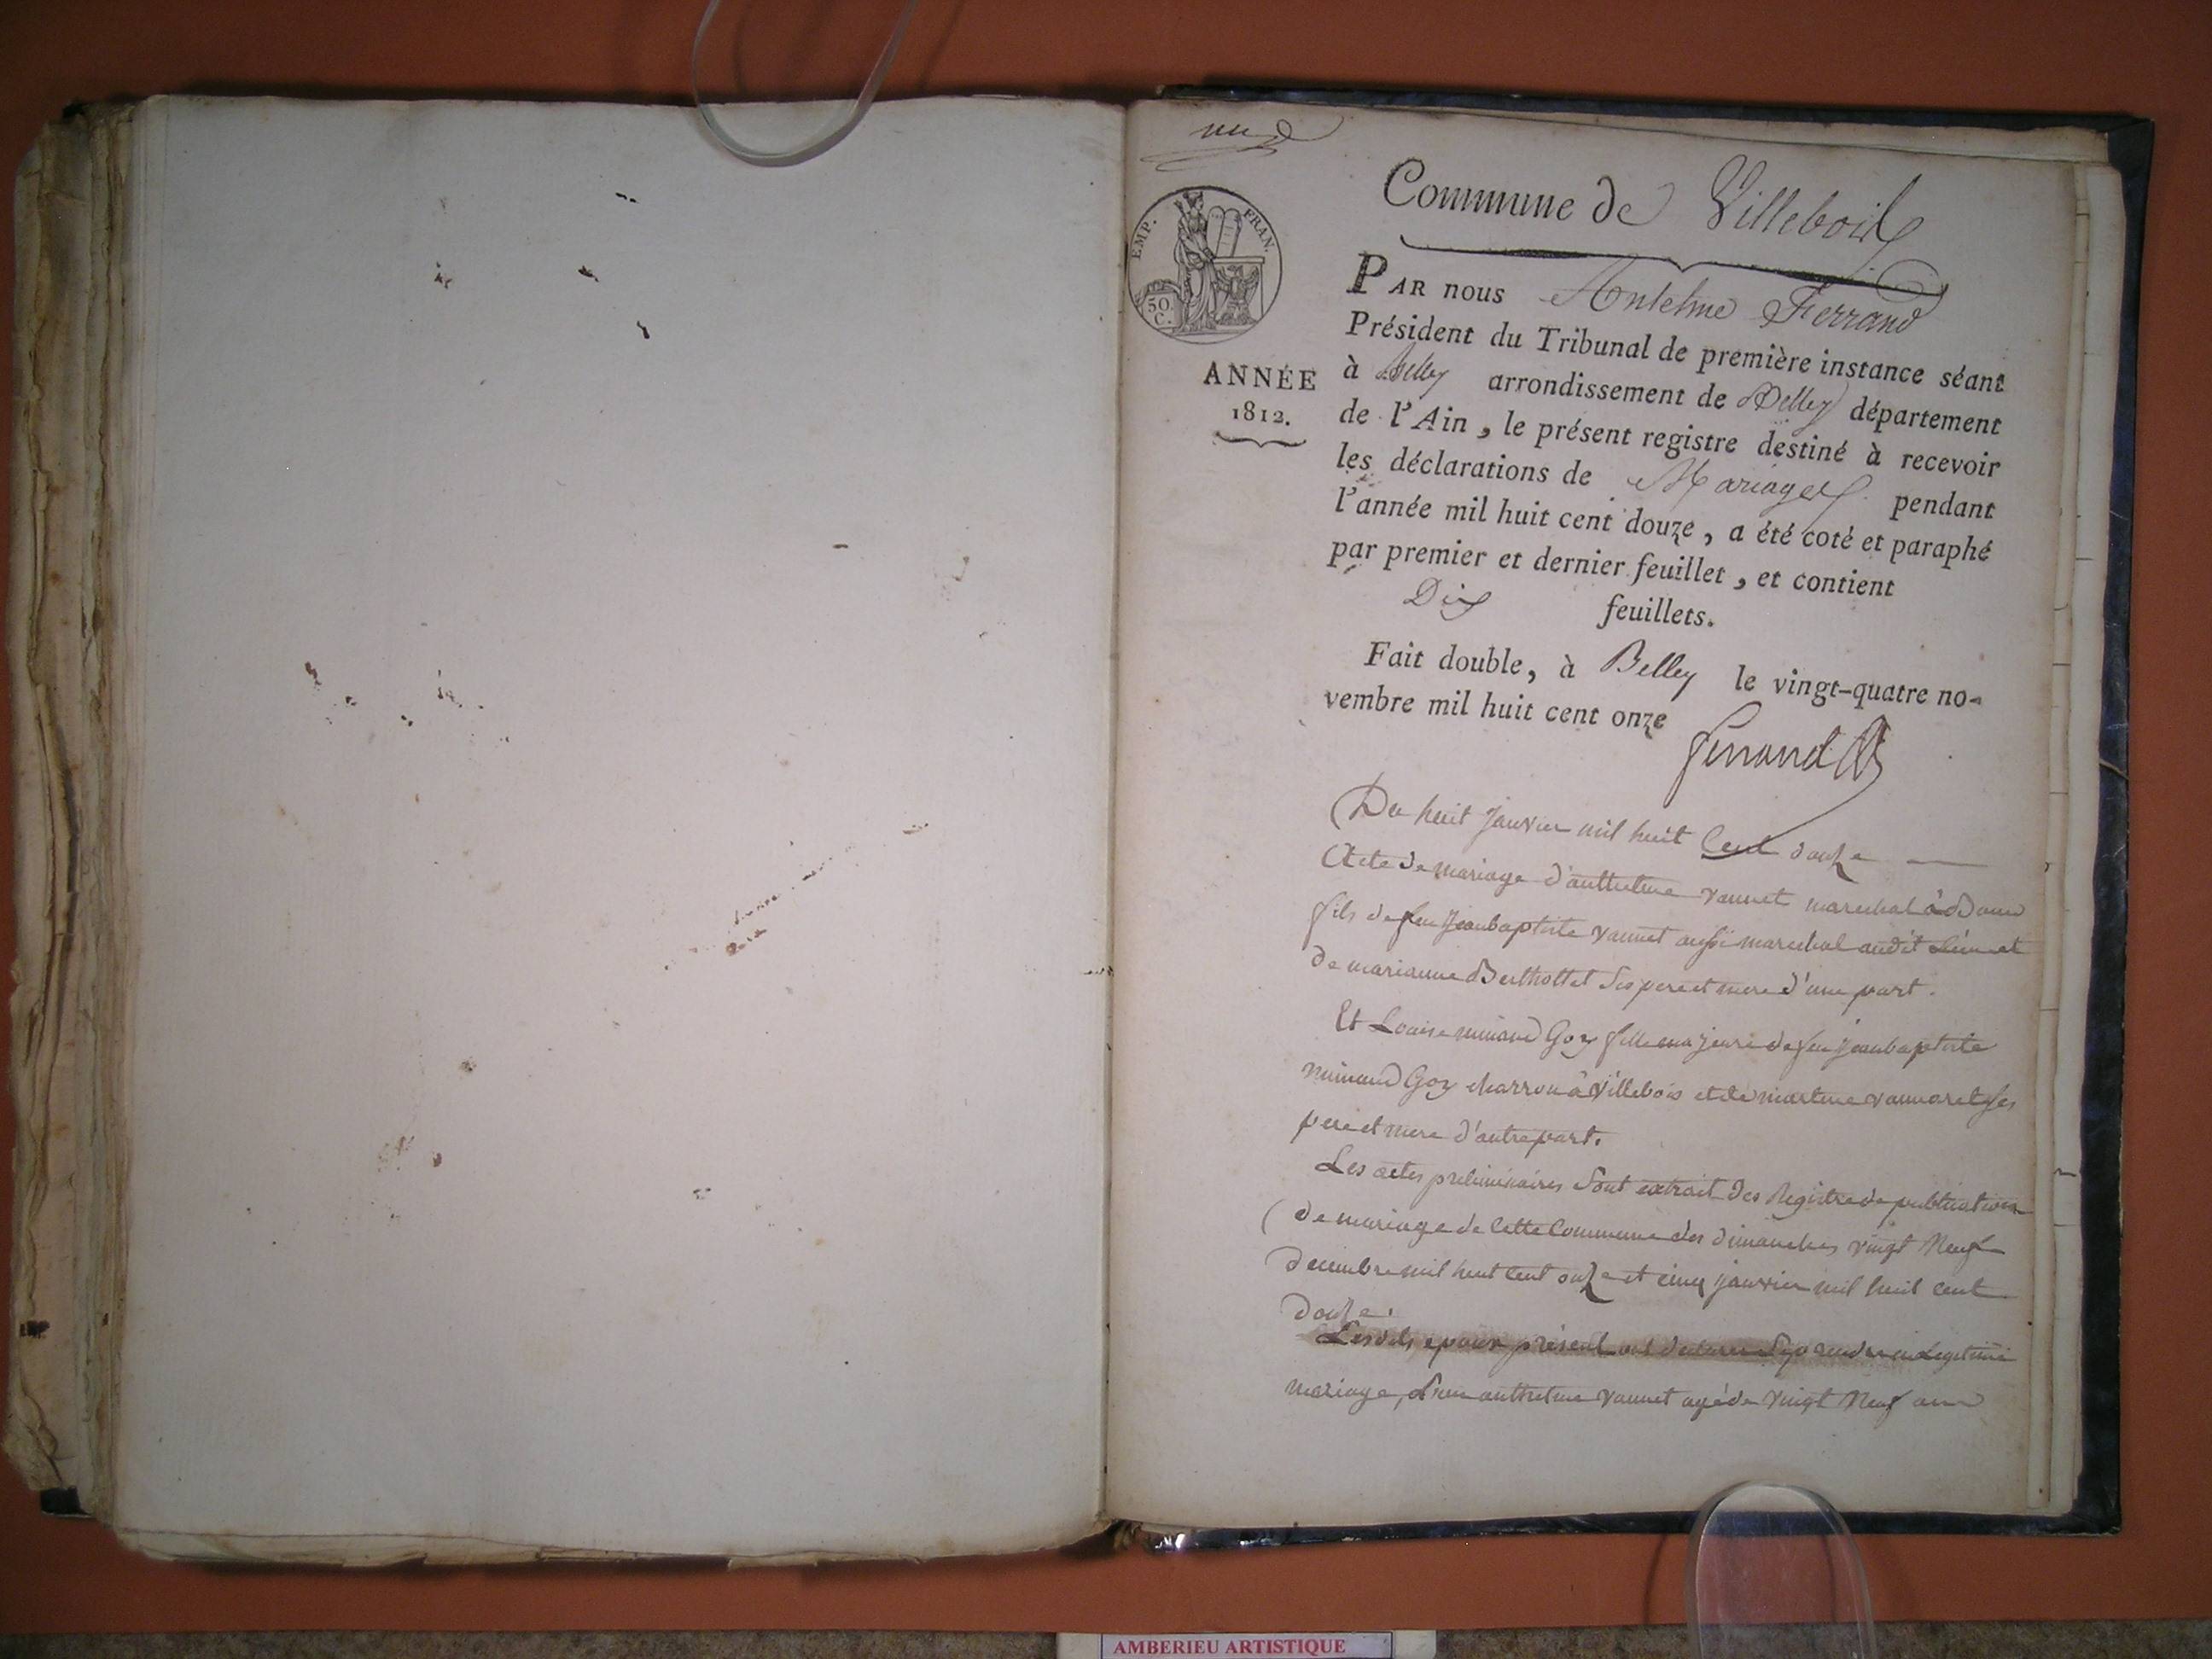 une
Commune de Villebois
EMP. FRAN.
50
C.
PAR nous Anthelme Ferrand
Président du Tribunal de première instance séant
ANNÉE
1812.
à Belley arrondissement de Belley département
de l'Ain, le présent registre destiné à recevoir
les déclarations de Mariages pendant
l'année mil huit cent douze, a été coté et paraphé
par premier et dernier feuillet, et contient
Dix feuillets.
Fait double, à Belley le vingt-quatre no-
vembre mil huit cent onze
Ferrand
Du huit janvier mil huit Cent douze
Acte de mariage d'anthelme vannet marechal à
fils de feu Jeanbaptiste vannet aussi marechal audit Lieu et
de marianne Berthottet Ses pere et mere d'une part.
Et Louise minand Goy fille majeure de feu Jeanbaptiste
minand Goy charron à Villebois et de martine vannaret ses
pere et mere d'autre part.
Les actes preliminaires Sont extrait des Registre de publication
de mariage de cette Commune des dimanches vingt Neuf
decembre mil huit cent onze et cinq janvier mil huit cent
douze.
Lesdits epoux présent ont declarer prendre en Legitime
mariage, L'un anthelme vannet agé de vingt Neuf ans
AMBERIEU ARTISTIQUE